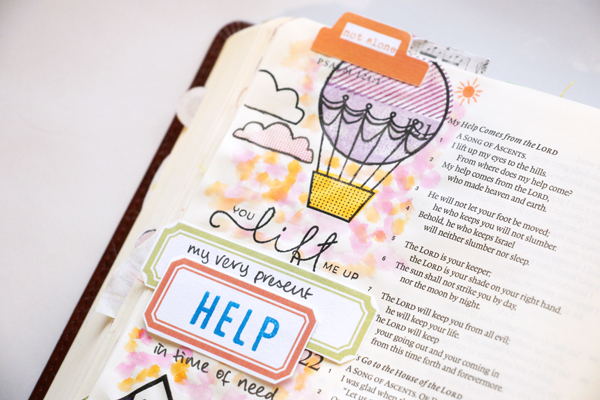 not alone
YOU
lift
ME UP
my very present
HELP
in time of need
My Help Comes from the LORD
A SONG OF ASCENTS.
1 I lift up my eyes to the hills.
From where does my help come?
2 My help comes from the LORD,
who made heaven and earth.
3 He will not let your foot be moved;
he who keeps you will not slumber.
4 Behold, he who keeps Israel
will neither slumber nor sleep.
5 The LORD is your keeper;
the LORD is your shade on your right hand.
6 The sun shall not strike you by day,
nor the moon by night.
7 The LORD will keep you from all evil;
he will keep your life.
The LORD will keep
your going out and your coming in
from this time forth and forevermore.
22 Go to the House of the LORD
1 A SONG OF ASCENTS. OF
I was glad when
2